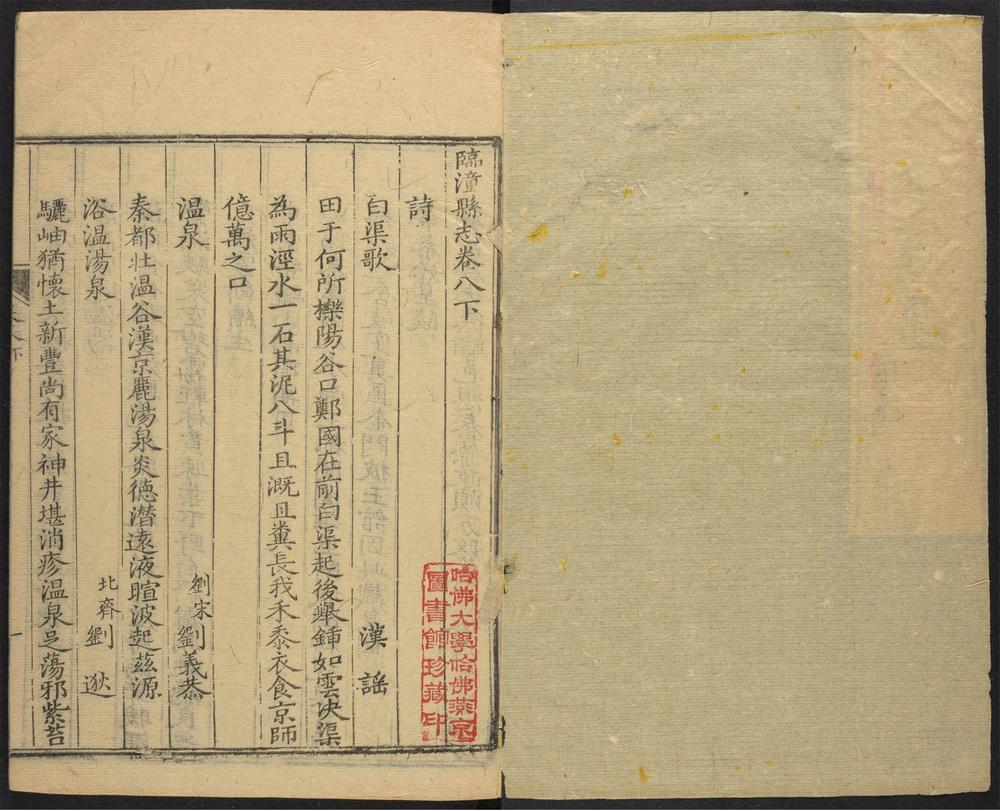 臨潼縣志卷八下
詩
白渠歌 漢謠
田于何所櫟陽谷口鄭國在前白渠起後舉鍤如雲決渠
為雨涇水一石其泥八斗且溉且糞長我禾黍衣食京師
億萬之口
温泉 劉宋劉義恭
秦都壯温谷漢京麗湯泉炎德潛遠液暄波起茲源
浴温湯泉 北齊劉逖
驪岫猶懷土新豐尚有家神井堪消疹温泉足蕩邪紫苔
哈佛大學哈佛燕京
圖書館珍藏印